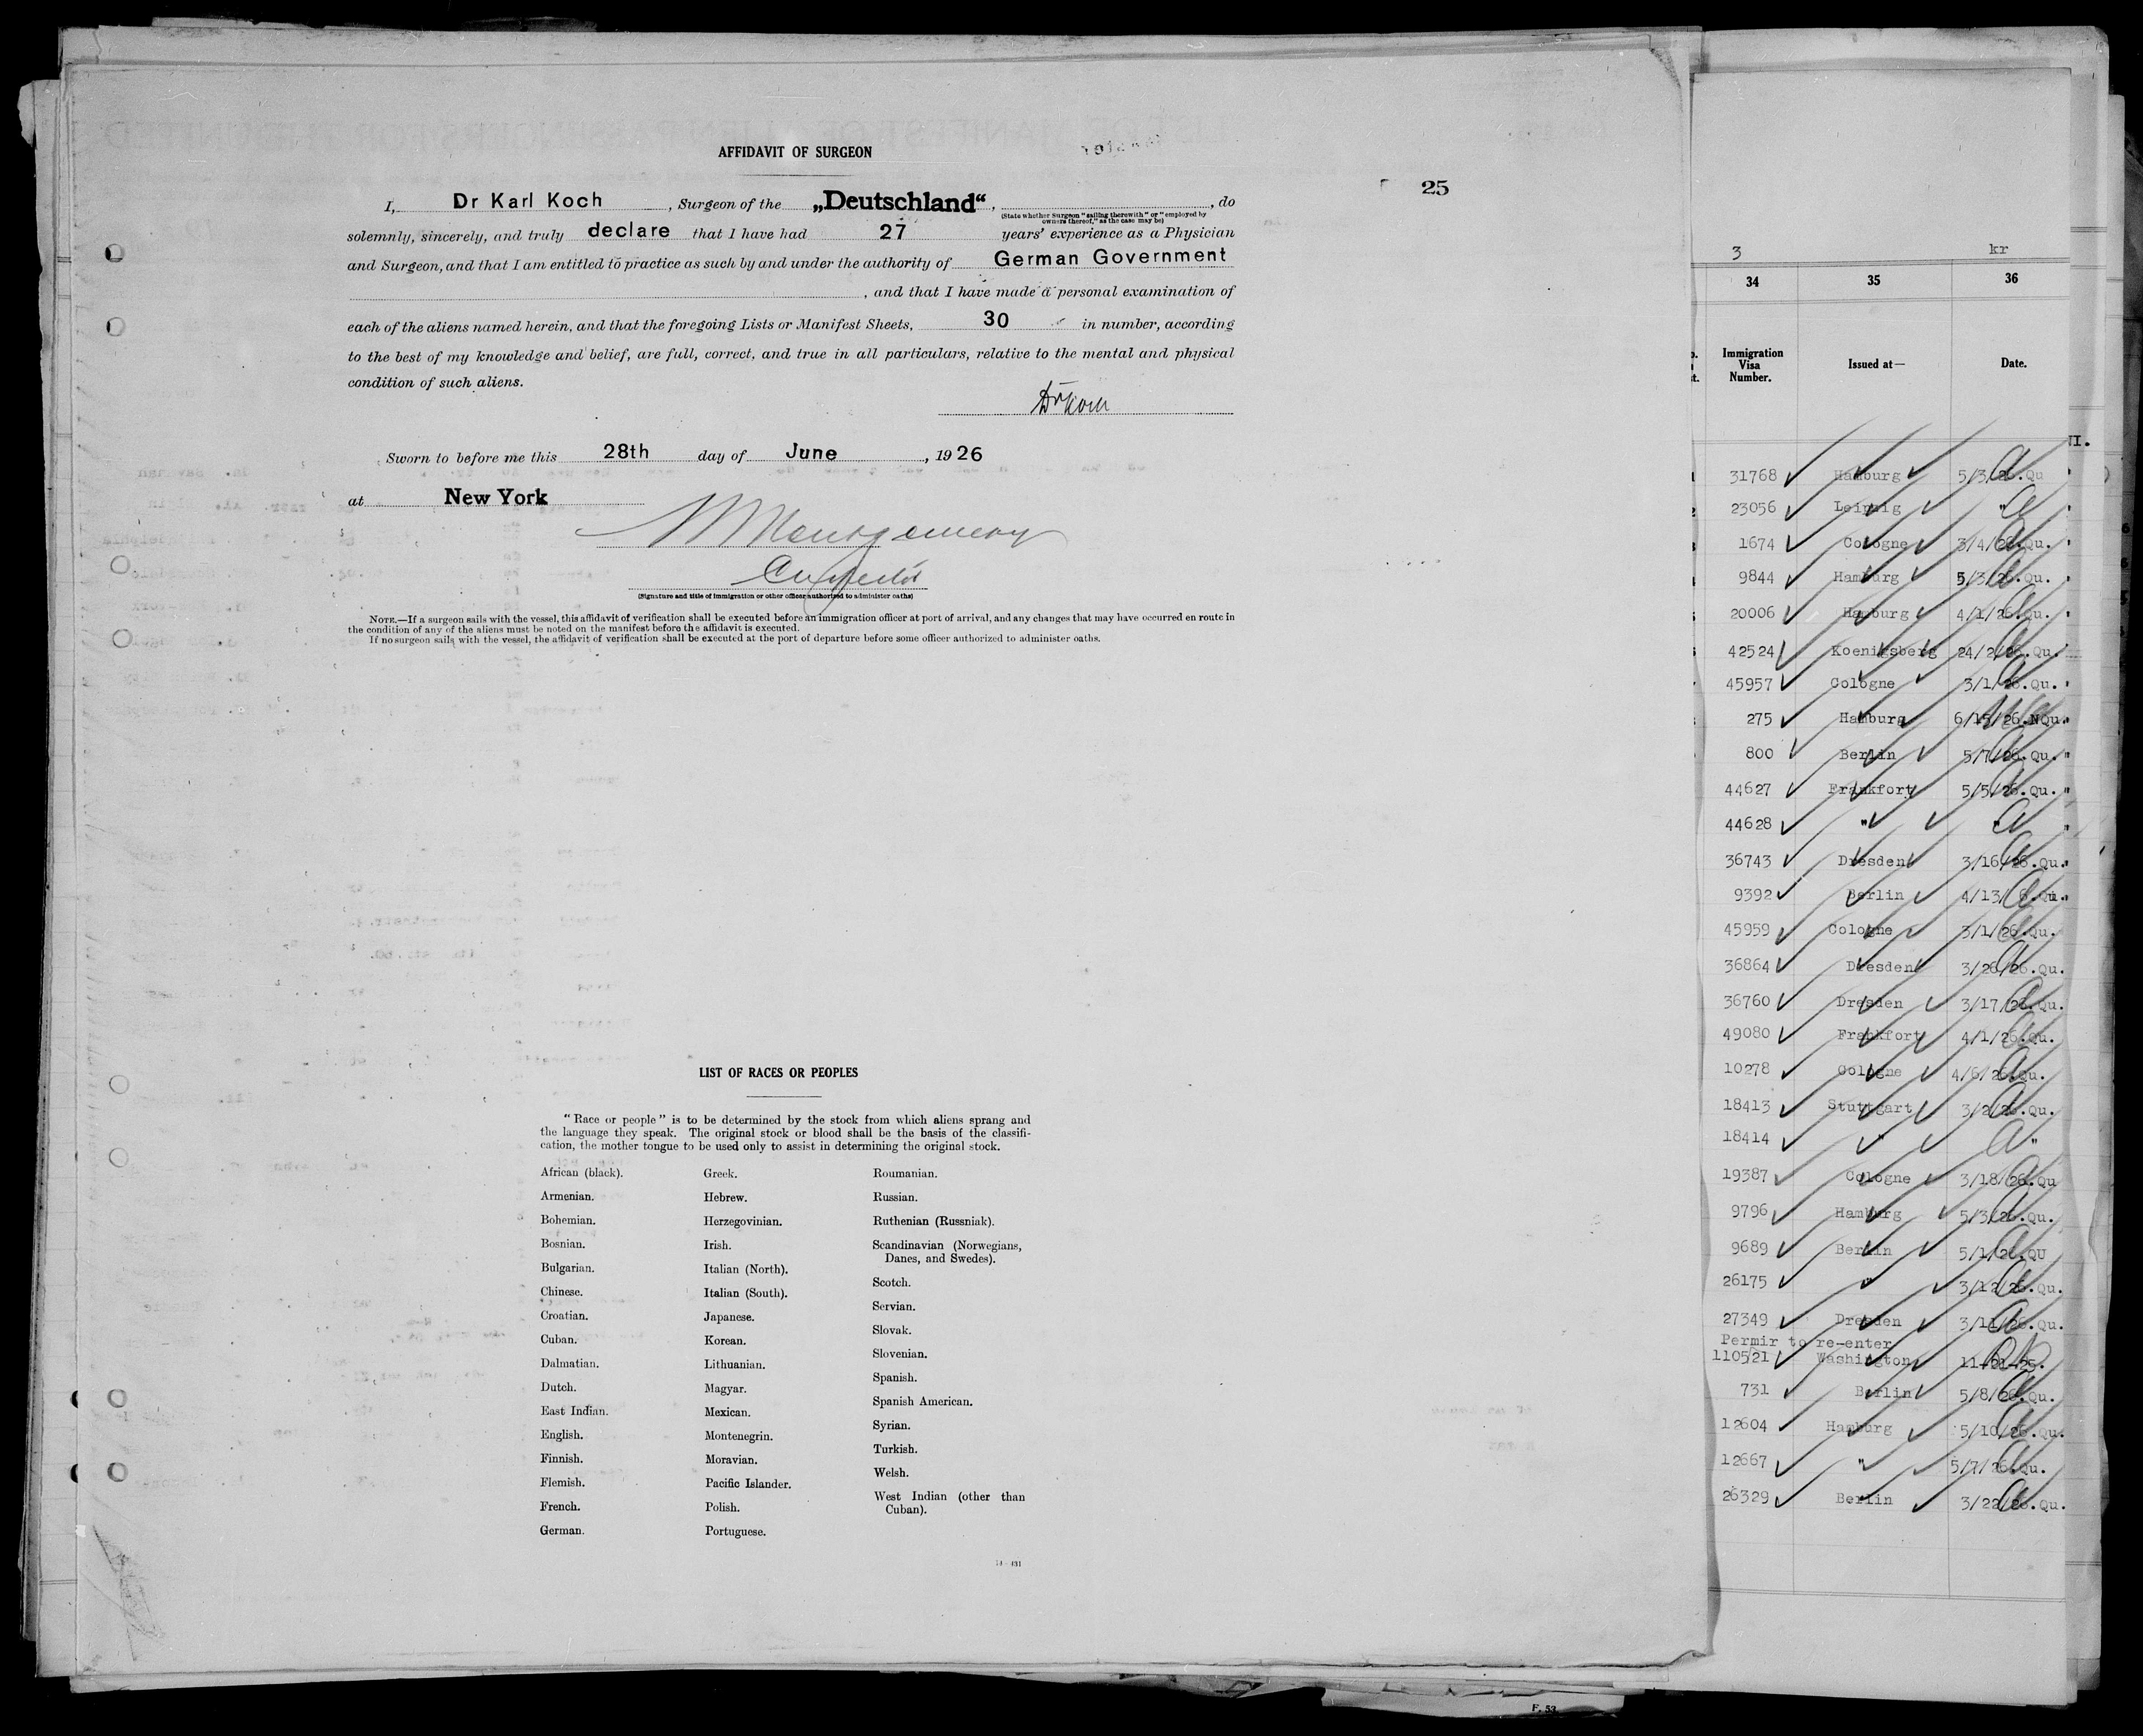 AFFIDAVIT OF SURGEON
25
I, Dr Karl Koch, Surgeon of the „Deutschland“, , do
(State whether Surgeon "sailing therewith" or "employed by owners thereof," as the case may be)
solemnly, sincerely, and truly declare that I have had 27 years' experience as a Physician
and Surgeon, and that I am entitled to practice as such by and under the authority of German Government
, and that I have made a personal examination of
each of the aliens named herein, and that the foregoing Lists or Manifest Sheets, 30 in number, according
to the best of my knowledge and belief, are full, correct, and true in all particulars, relative to the mental and physical
condition of such aliens.
Dr Koch
Sworn to before me this 28th day of June, 1926
at New York
Montgomery
(Signature and title of immigration or other officer authorized to administer oaths)
NOTE.—If a surgeon sails with the vessel, this affidavit of verification shall be executed before an immigration officer at port of arrival, and any changes that may have occurred en route in
the condition of any of the aliens must be noted on the manifest before the affidavit is executed.
If no surgeon sails with the vessel, the affidavit of verification shall be executed at the port of departure before some officer authorized to administer oaths.
LIST OF RACES OR PEOPLES
"Race or people" is to be determined by the stock from which aliens sprang and
the language they speak. The original stock or blood shall be the basis of the classifi-
cation, the mother tongue to be used only to assist in determining the original stock.
African (black).
Armenian.
Bohemian.
Bosnian.
Bulgarian.
Chinese.
Croatian.
Cuban.
Dalmatian.
Dutch.
East Indian.
English.
Finnish.
Flemish.
French.
German.
Greek.
Hebrew.
Herzegovinian.
Irish.
Italian (North).
Italian (South).
Japanese.
Korean.
Lithuanian.
Magyar.
Mexican.
Montenegrin.
Moravian.
Pacific Islander.
Polish.
Portuguese.
Roumanian.
Russian.
Ruthenian (Russniak).
Scandinavian (Norwegians,
Danes, and Swedes).
Scotch.
Servian.
Slovak.
Slovenian.
Spanish.
Spanish American.
Syrian.
Turkish.
Welsh.
West Indian (other than
Cuban).
3 kr
34 35 36
Immigration Visa Number. Issued at— Date.
31768 Hamburg 5/3/26.Qu
23056 Leipzig "
1674 Cologne 3/4/26.Qu.
9844 Hamburg 5/3/26.Qu.
20006 Hamburg 4/1/26.Qu.
42524 Koenigsberg 24/2/26.Qu.
45957 Cologne 3/1/26.Qu.
275 Hamburg 6/15/26.NQu.
800 Berlin 5/7/26.Qu.
44627 Frankfort 5/5/26.Qu.
44628 " "
36743 Dresden 3/16/26.Qu.
9392 Berlin 4/13/26.Qu.
45959 Cologne 3/1/26.Qu.
36864 Dresden 3/26/26.Qu.
36760 Dresden 3/17/26.Qu.
49080 Frankfort 4/1/26.Qu.
10278 Cologne 4/6/26.Qu.
18413 Stuttgart 3/2/26.Qu.
18414 " "
19387 Cologne 3/18/26.Qu
9796 Hamburg 5/3/26.Qu.
9689 Berlin 5/1/26.QU
26175 " 3/12/26.Qu.
27349 Dresden 3/11/26.Qu.
Permir to re-enter
110521 Washington 11-21-25.
731 Berlin 5/8/26.Qu.
12604 Hamburg 5/10/26.Qu.
12667 " 5/7/26.Qu.
26329 Berlin 3/22/26.Qu.
F. 53